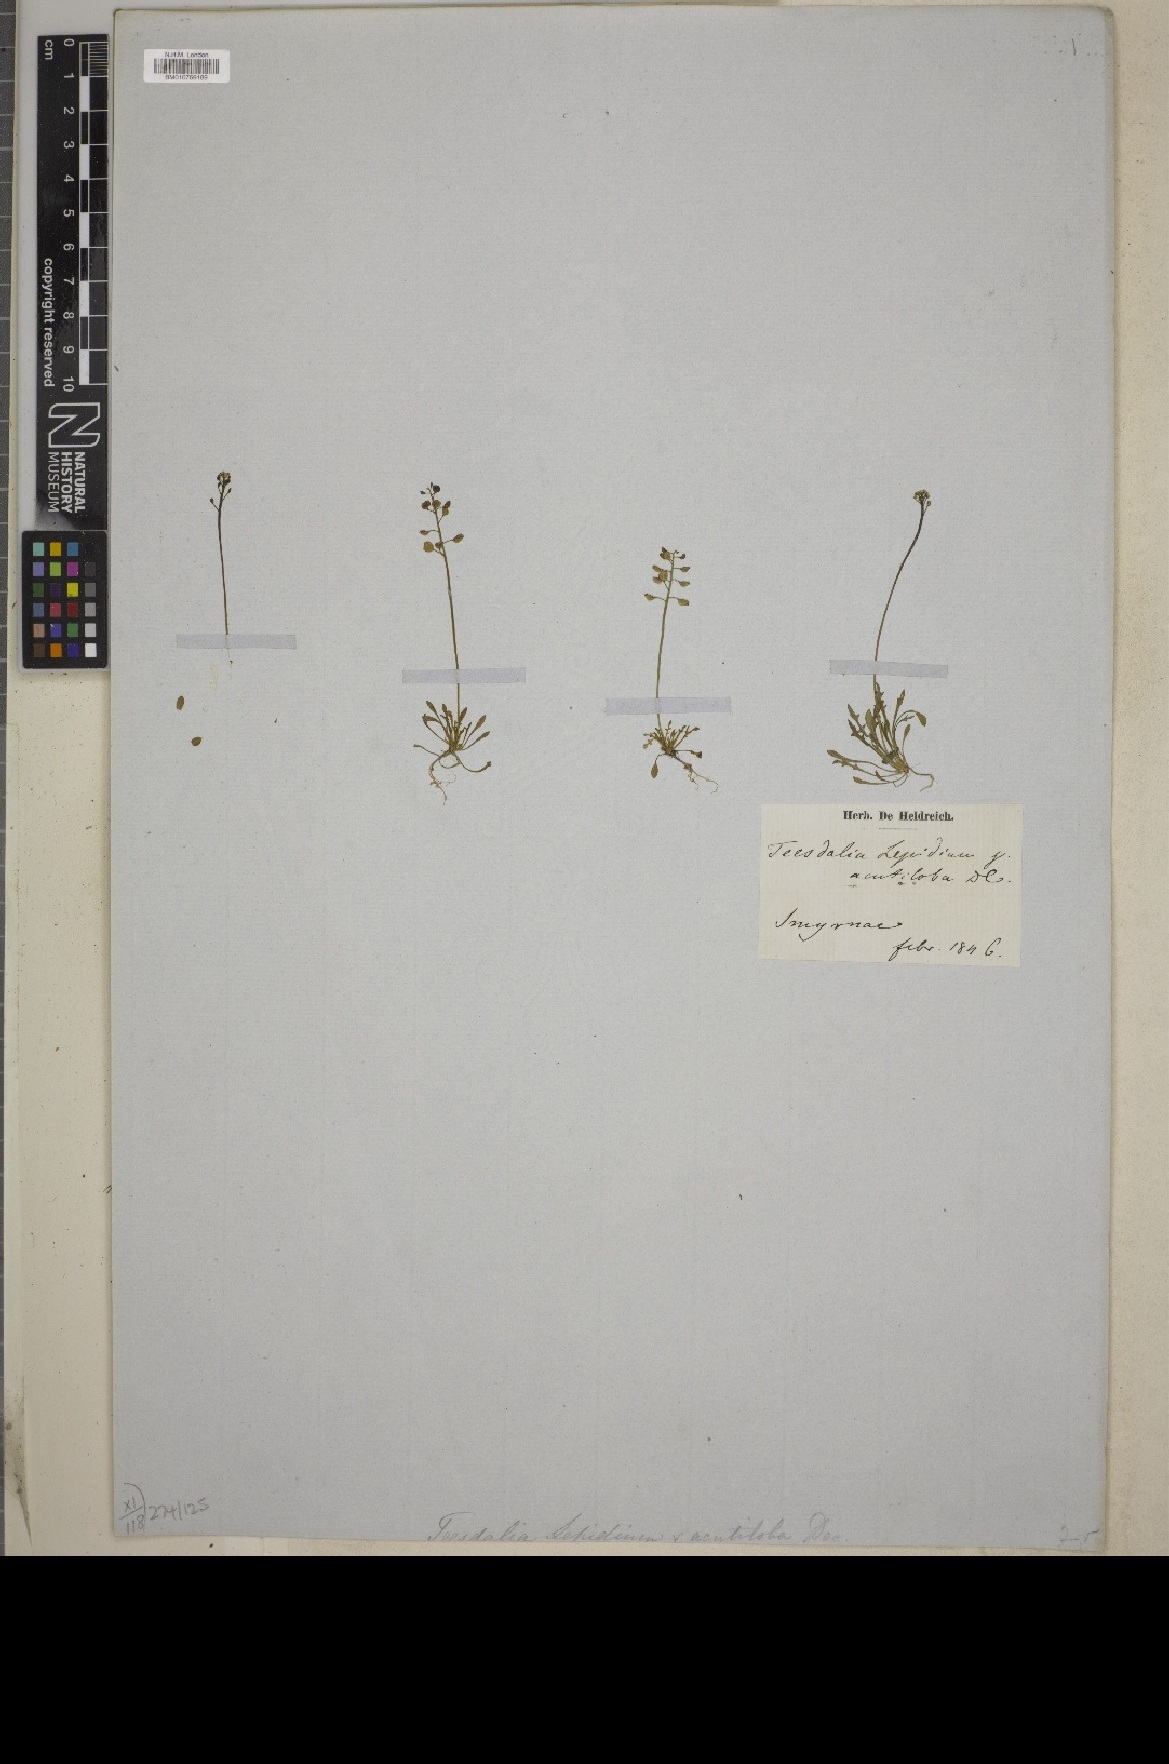 cm 0 1 2 3 4 5 6 7 8 9 10
copyright reserved
NATURAL
HISTORY
MUSEUM
Herb. De Heldreich.
Teesdalia Lepidium γ.
acutiloba DC.
Smyrnae
febr. 1846.
XI) 274/125
118
Teesdalia Lepidium γ acutiloba Dec.